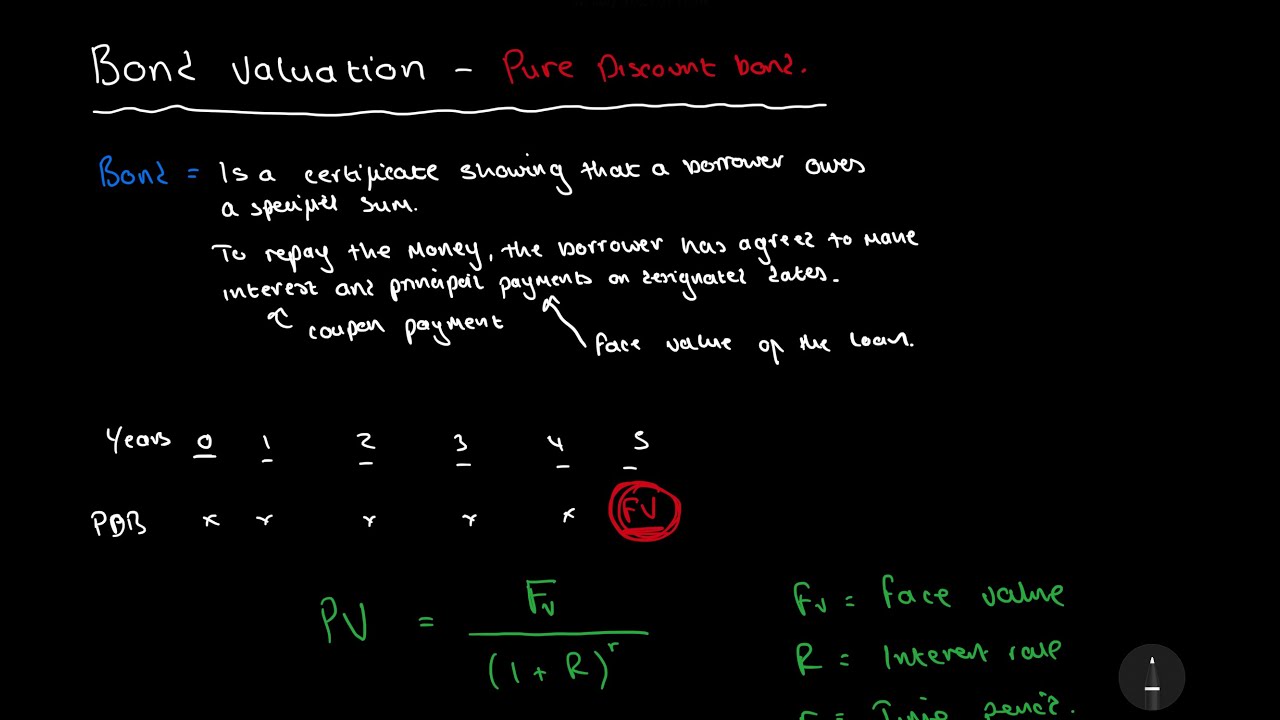 Bond Valuation - Pure Discount bond.
Bond = Is a certificate showing that a borrower owes
a specified sum.
To repay the money, the borrower has agreed to make
interest and principal payments on designated dates.
coupon payment
face value of the loan.
Years 0 1 2 3 4 5
PDB x x x x x FV
PV = Fv / (1 + R)^r
Fv = face value
R = Interest rate
r = Time period.